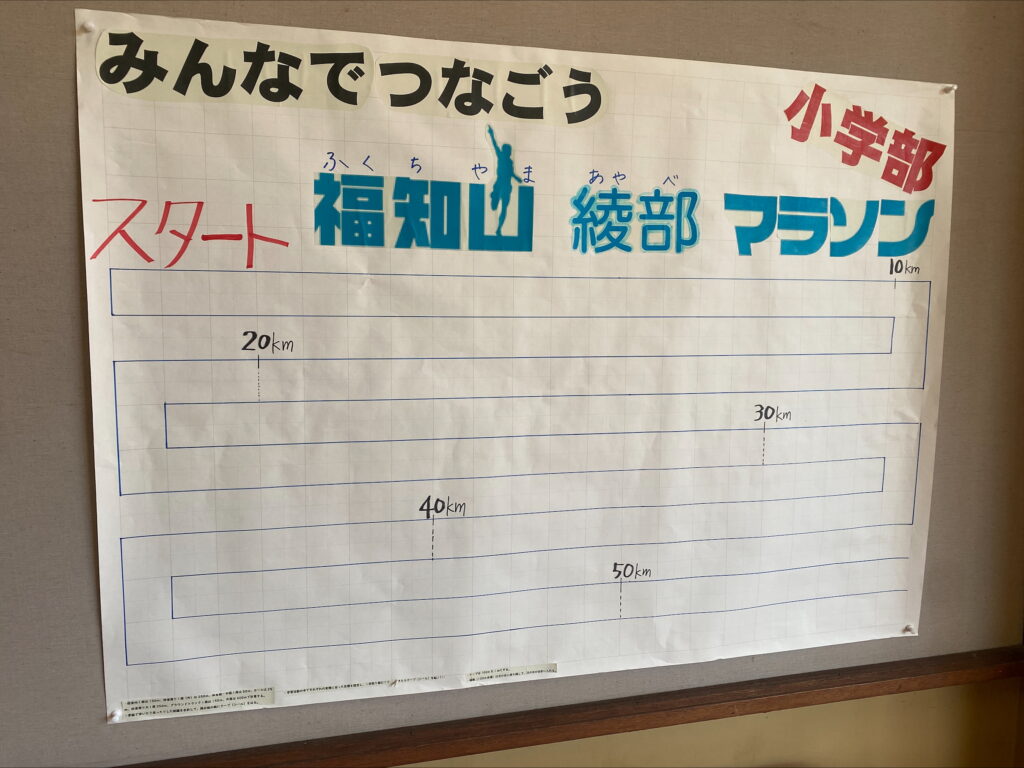 みんなでつなごう
小学部
ふくちやま あやべ
スタート 福知山 綾部 マラソン
10km
20km
30km
40km
50km